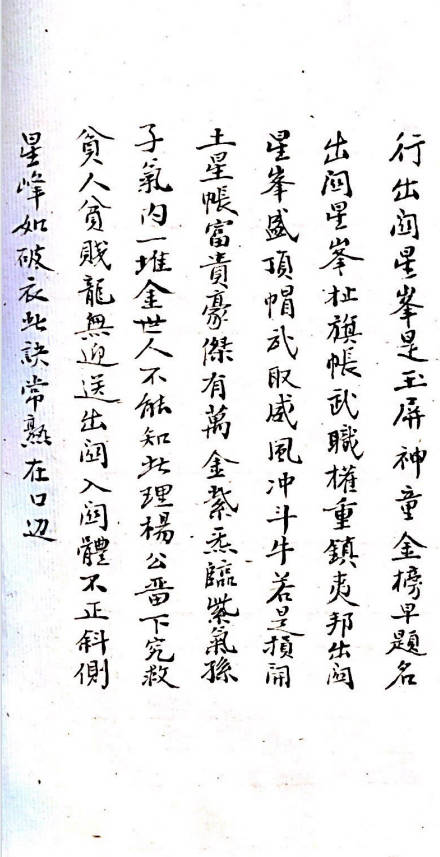 行出闾星峯是玉屏神童金榜早题名
出闾星峯扯旗帐武職權重鎮夷邦出闾
星峯盛頂帽武取威風冲斗牛若是損開
土星帳富貴豪傑有萬金紫炁臨紫氣孫
子氣内一堆金世人不能知此理楊公畄下完救
貧人貧賤龍無迎送出闾入闾體不正斜側
星峰如破衣此訣常熟在口边